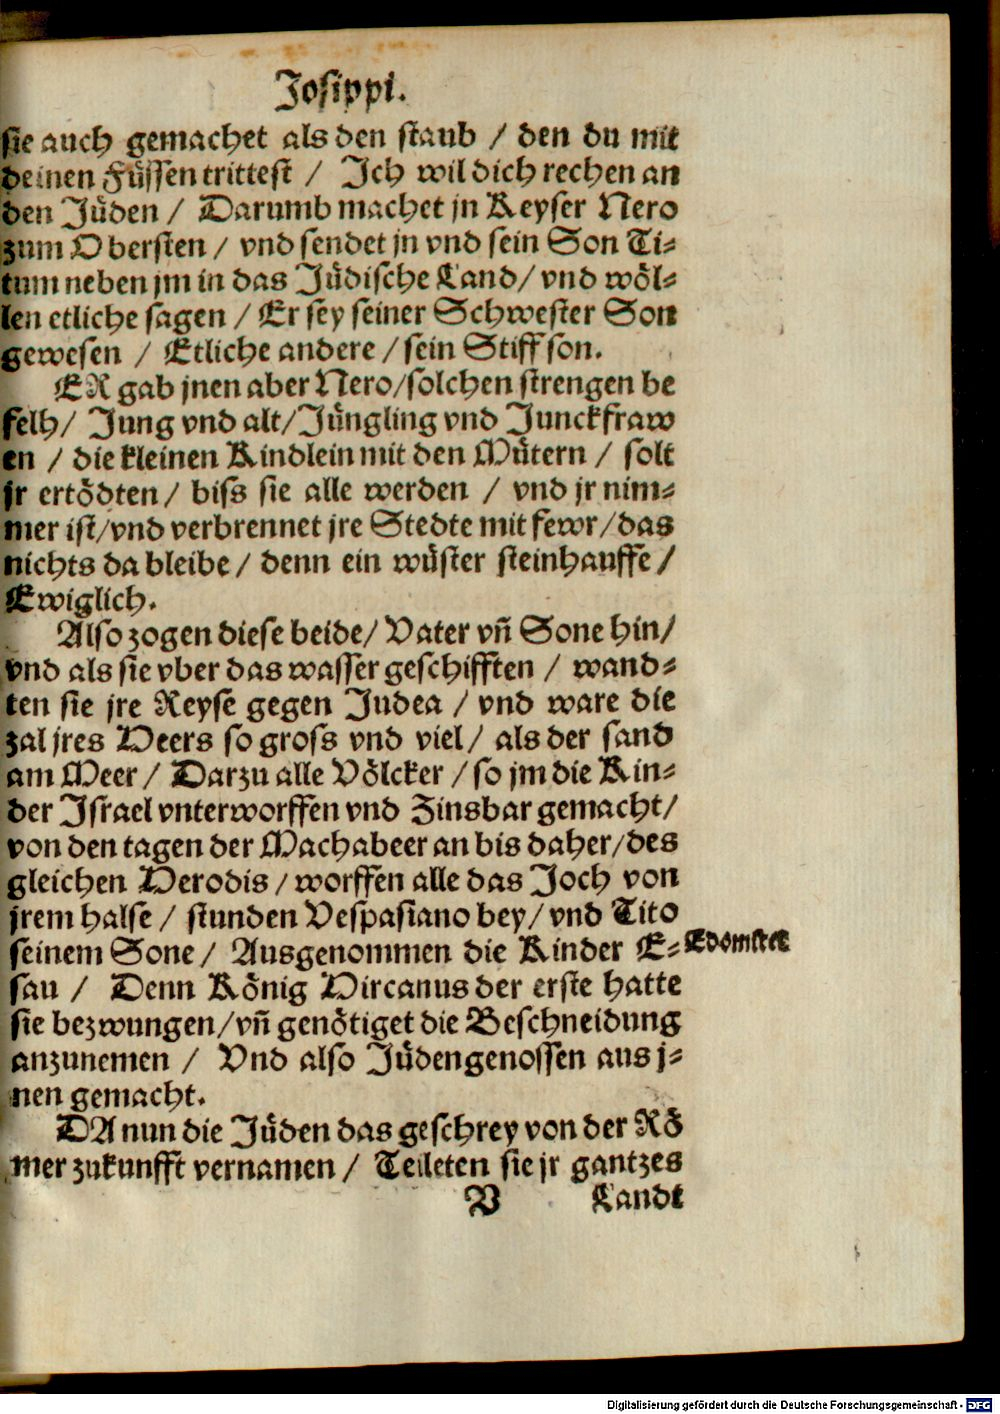 Josippi.
sie auch gemachet als den staub / den du mit
deinen Füssen trittest / Ich wil dich rechen an
den Jüden / Darumb machet jn Keyser Nero
zum Obersten / vnd sendet jn vnd sein Son Ti⸗
tum neben jm in das Jüdische Land / vnd wöl⸗
len etliche sagen / Er sey seiner Schwester Son
gewesen / Etliche andere / sein Stiff son.
ER gab jnen aber Nero / solchen strengen be
felh / Jung vnd alt / Jüngling vnd Junckfraw
en / die kleinen Kindlein mit den Mütern / solt
jr ertödten / biss sie alle werden / vnd jr nim⸗
mer ist / vnd verbrennet jre Stedte mit fewr / das
nichts da bleibe / denn ein wüster steinhauffe /
Ewiglich.
Also zogen diese beide / Vater vñ Sone hin /
vnd als sie vber das wasser geschifften / wand⸗
ten sie jre Reyse gegen Judea / vnd ware die
zal jres Heers so gross vnd viel / als der sand
am Meer / Darzu alle Völcker / so jm die Kin⸗
der Israel vnterworffen vnd Zinsbar gemacht /
von den tagen der Machabeer an bis daher / des
gleichen Herodis / worffen alle das Joch von
jrem halse / stunden Vespasiano bey / vnd Tito
seinem Sone / Ausgenommen die Kinder E⸗
sau / Denn König Hircanus der erste hatte
sie bezwungen / vñ genötiget die Beschneidung
anzunemen / Vnd also Jüdengenossen aus j⸗
nen gemacht.
DA nun die Jüden das geschrey von der Rö
mer zukunfft vernamen / Teileten sie jr gantzes
V Landt
Digitalisierung gefördert durch die Deutsche Forschungsgemeinschaft - DFG